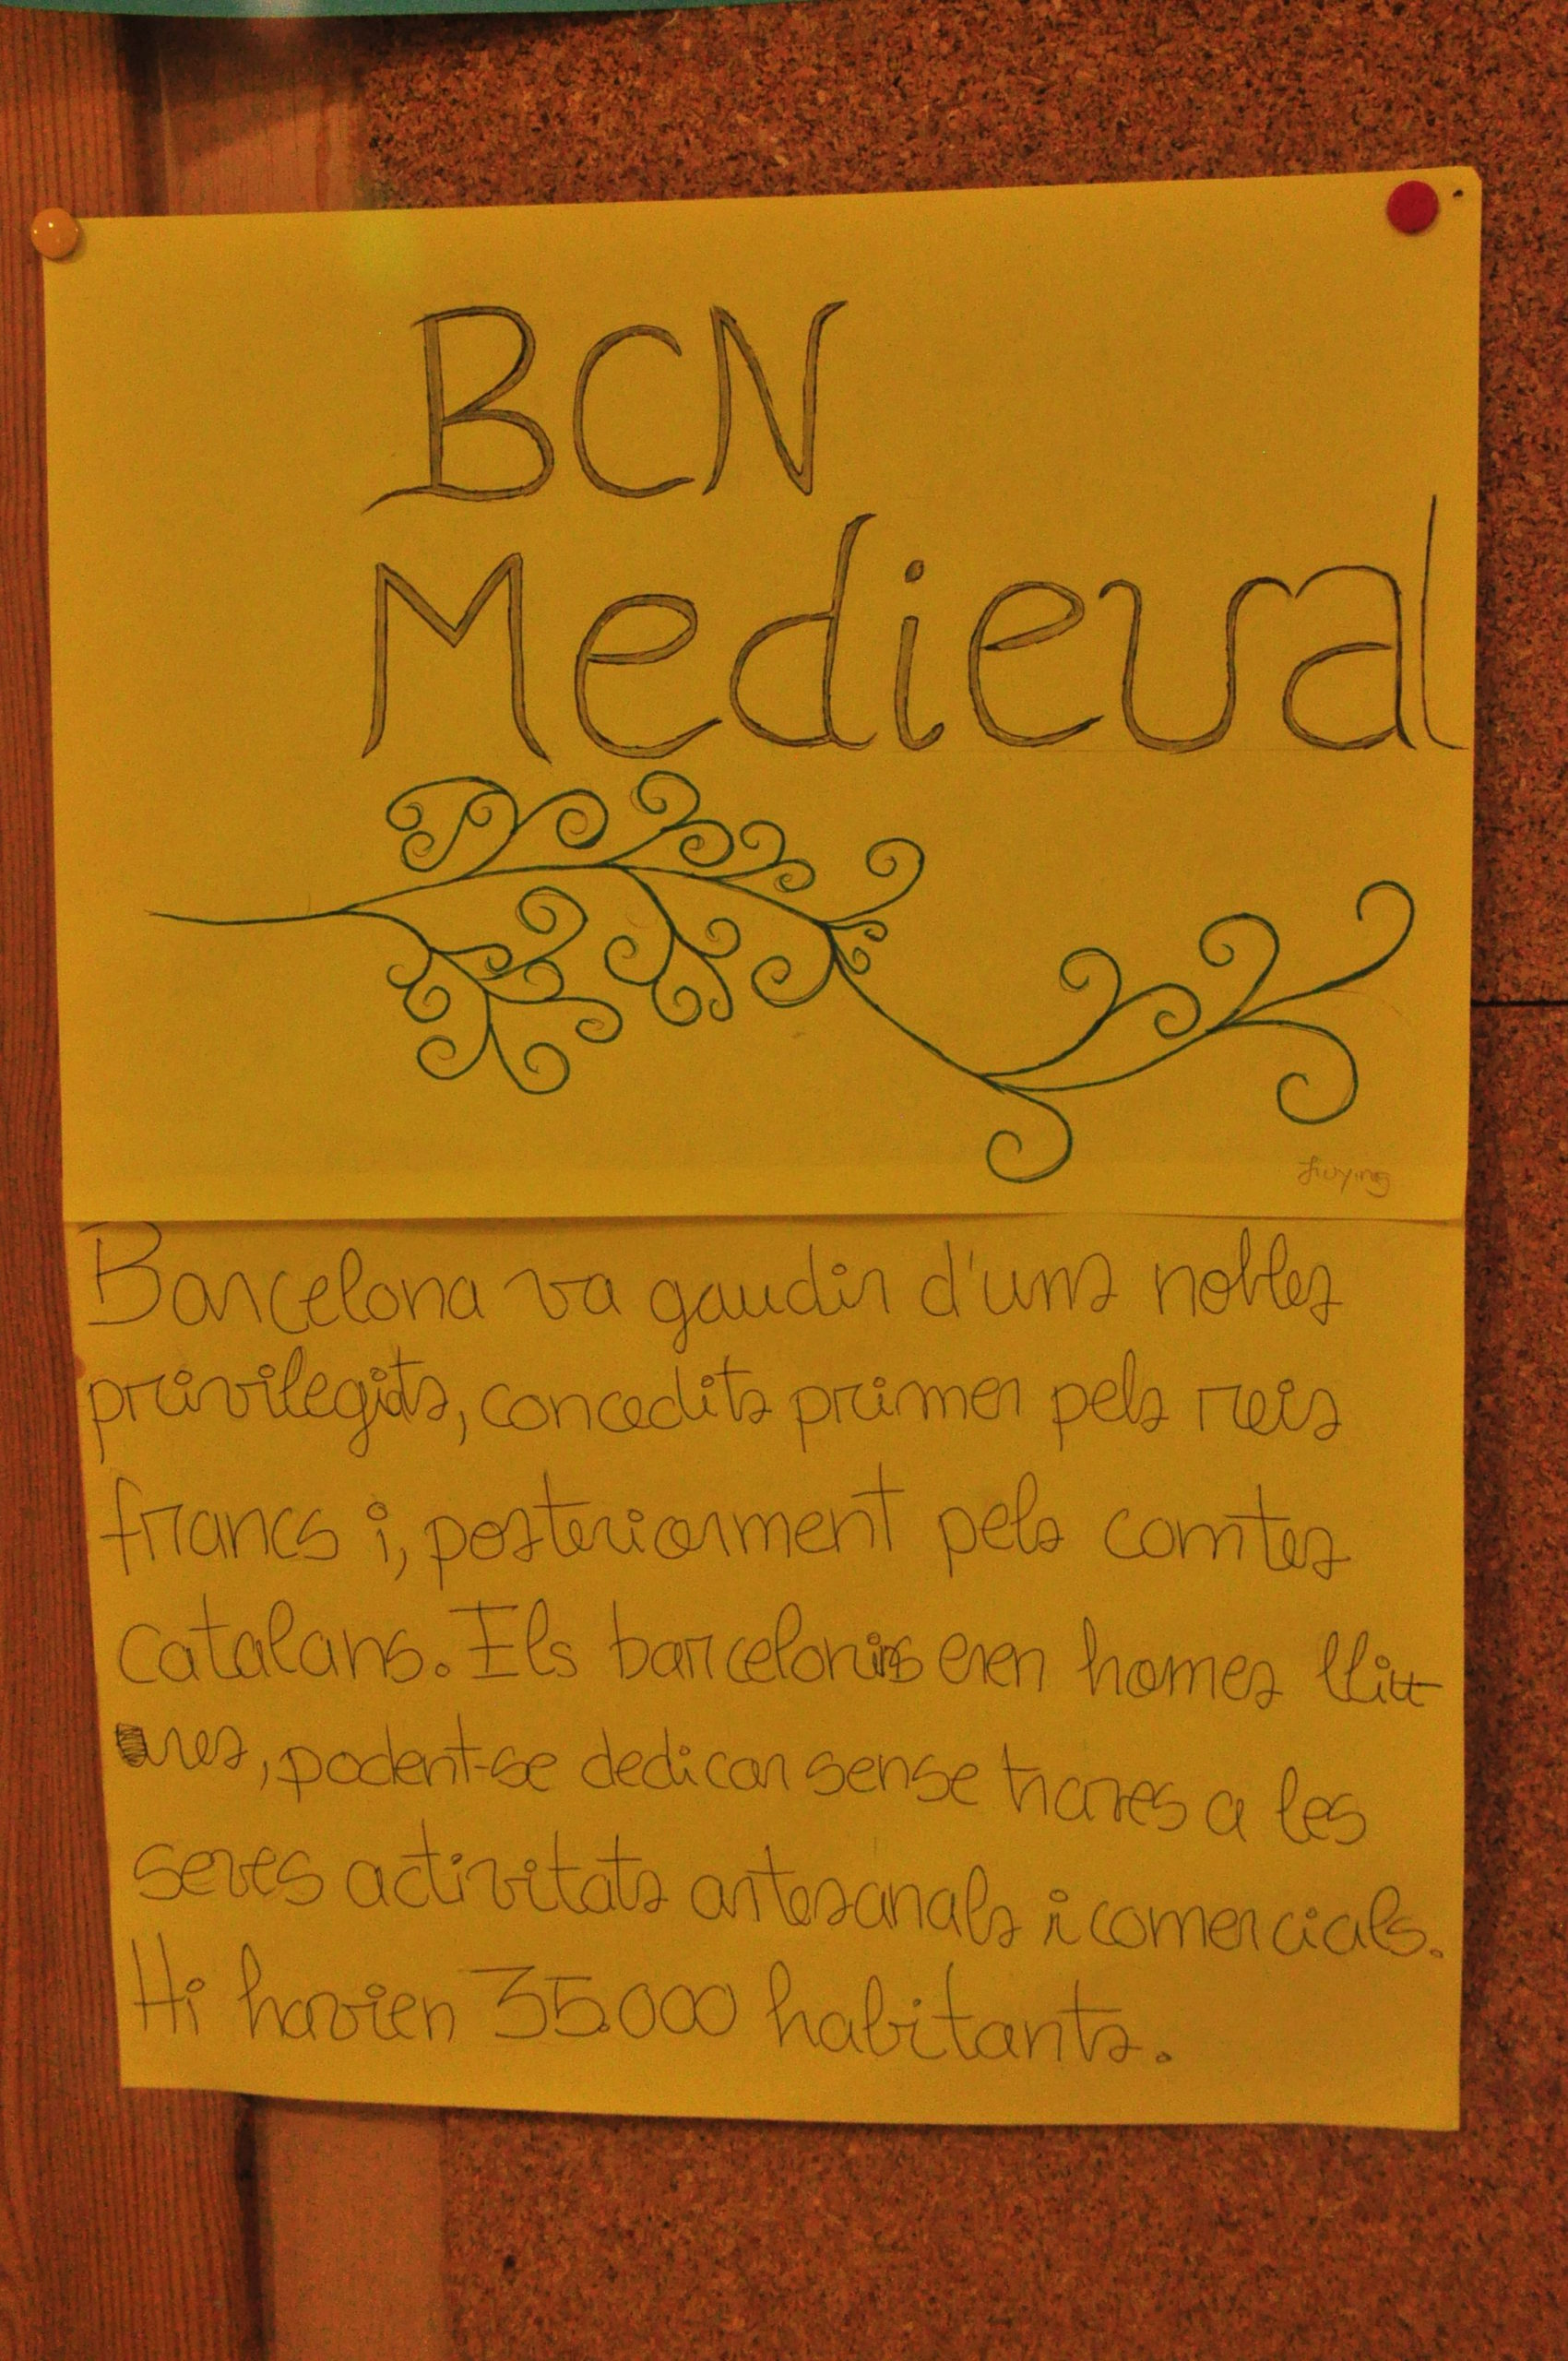 BCN
Medieval
Barcelona va gaudir d'uns nobles
privilegits, concedits primer pels reis
francs i, posteriorment pels comtes
catalans. Els barcelonins eren homes lliu
ures, podent-se dedicar sense traves a les
seves activitats artesanals i comercials.
Hi havien 35.000 habitants.